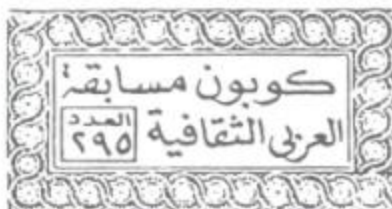 كوبون مسابقة
العربى الثقافية
العدد
٢٩٥